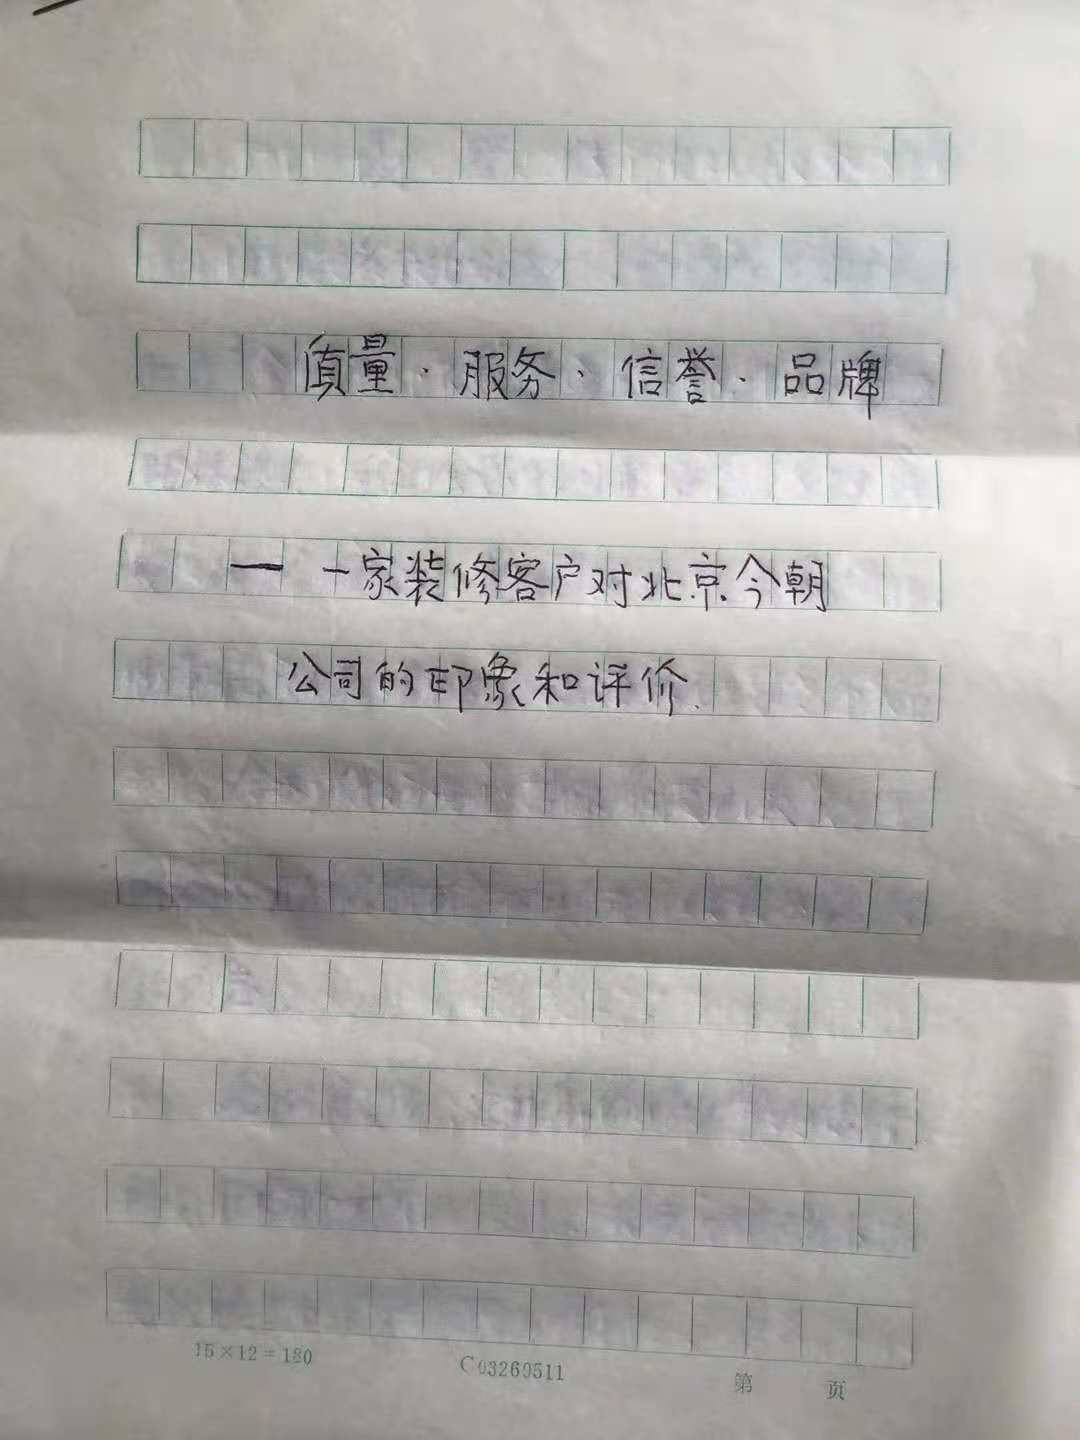 质量·服务、信誉·品牌
— 一家装修客户对北京今朝
公司的印象和评价.
15×12=180 C03260511 第 页